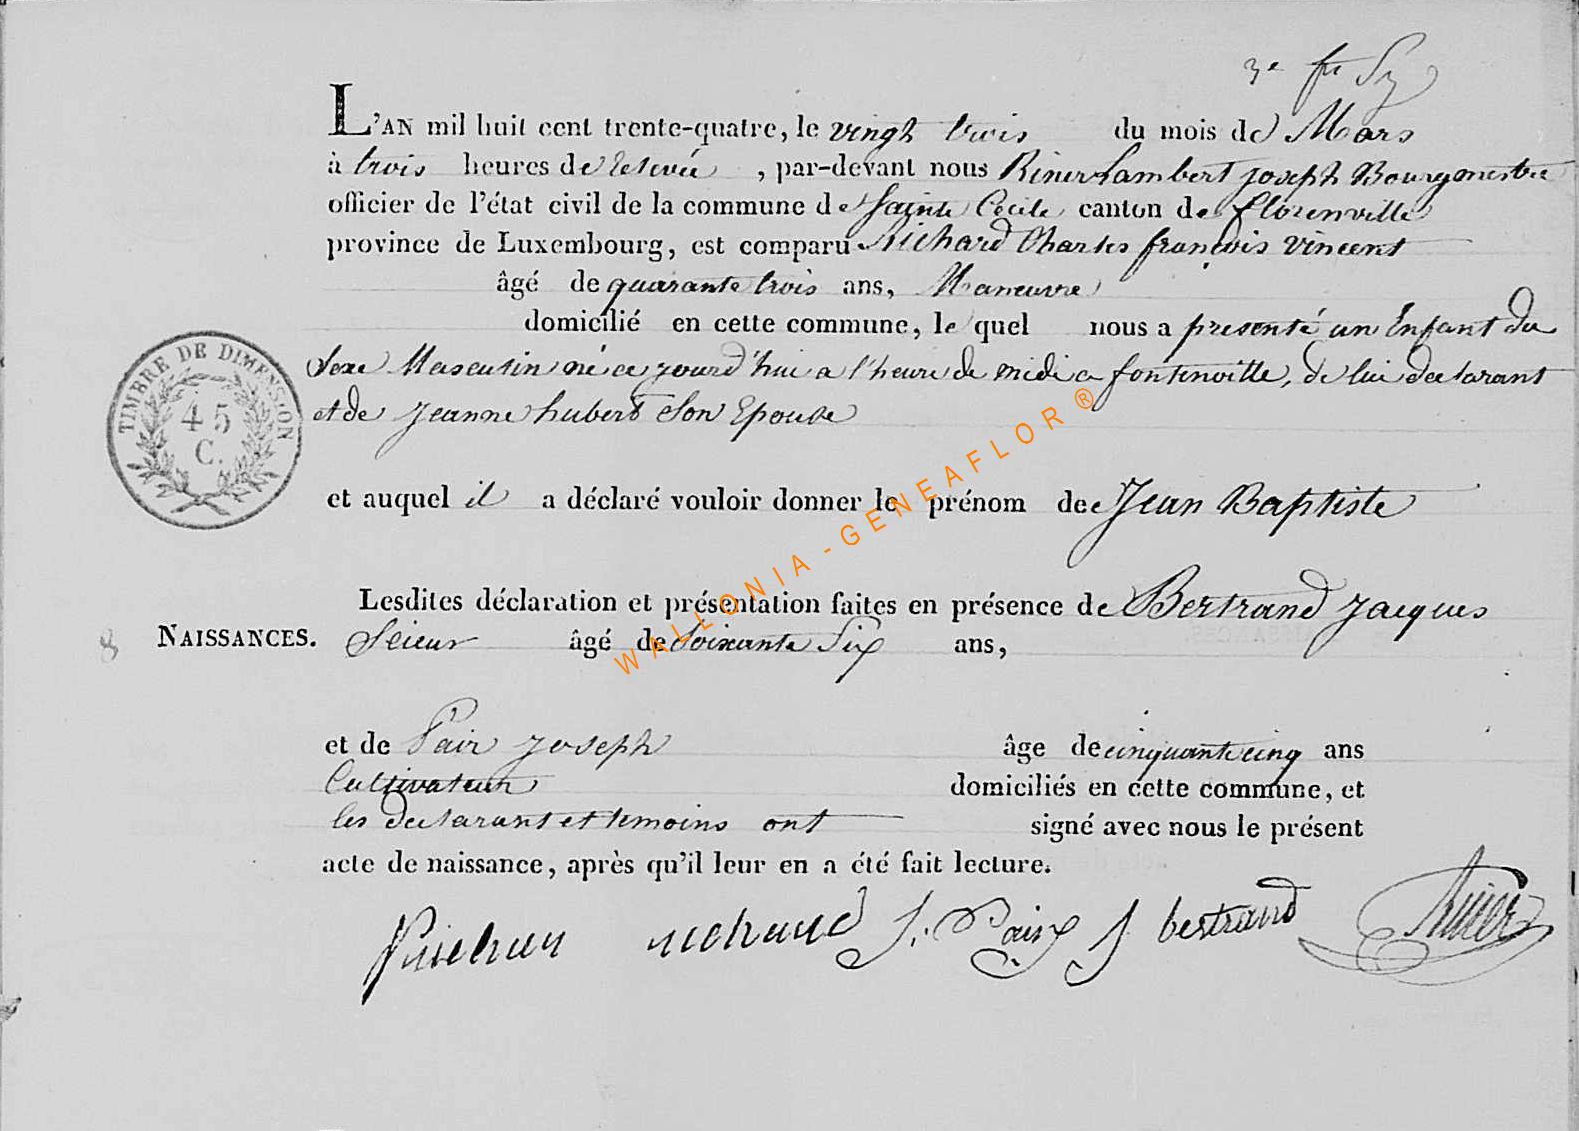 3e fr Sy
L'AN mil huit cent trente-quatre, le vingt trois du mois de Mars
à trois heures de relevée, par-devant nous Riner Lambert Joseph Bourgmestre
officier de l'état civil de la commune de Sainte Cécile canton de florenville
province de Luxembourg, est comparu Richard Charles françois vincent
âgé de quarante trois ans, Maneuvre
domicilié en cette commune, le quel nous a presenté un Enfant du
Sexe Masculin né ce jourd'hui a l'heure de midi a fontenville, de lui declarant
et de Jeanne hubert Son Epouse
TIMBRE DE DIMENSION
45
C.
et auquel il a déclaré vouloir donner le prénom de Jean Baptiste
Lesdites déclaration et présentation faites en présence de Bertrand Jacques
8 NAISSANCES. Scieur âgé de Soixante Six ans,
et de Paix Joseph âge de cinquante cinq ans
Cultivateur domiciliés en cette commune, et
les declarant et temoins ont signé avec nous le présent
acte de naissance, après qu'il leur en a été fait lecture.
richard J. Paix J bertrand Riner
WALLONIA - GENEAFLOR ®